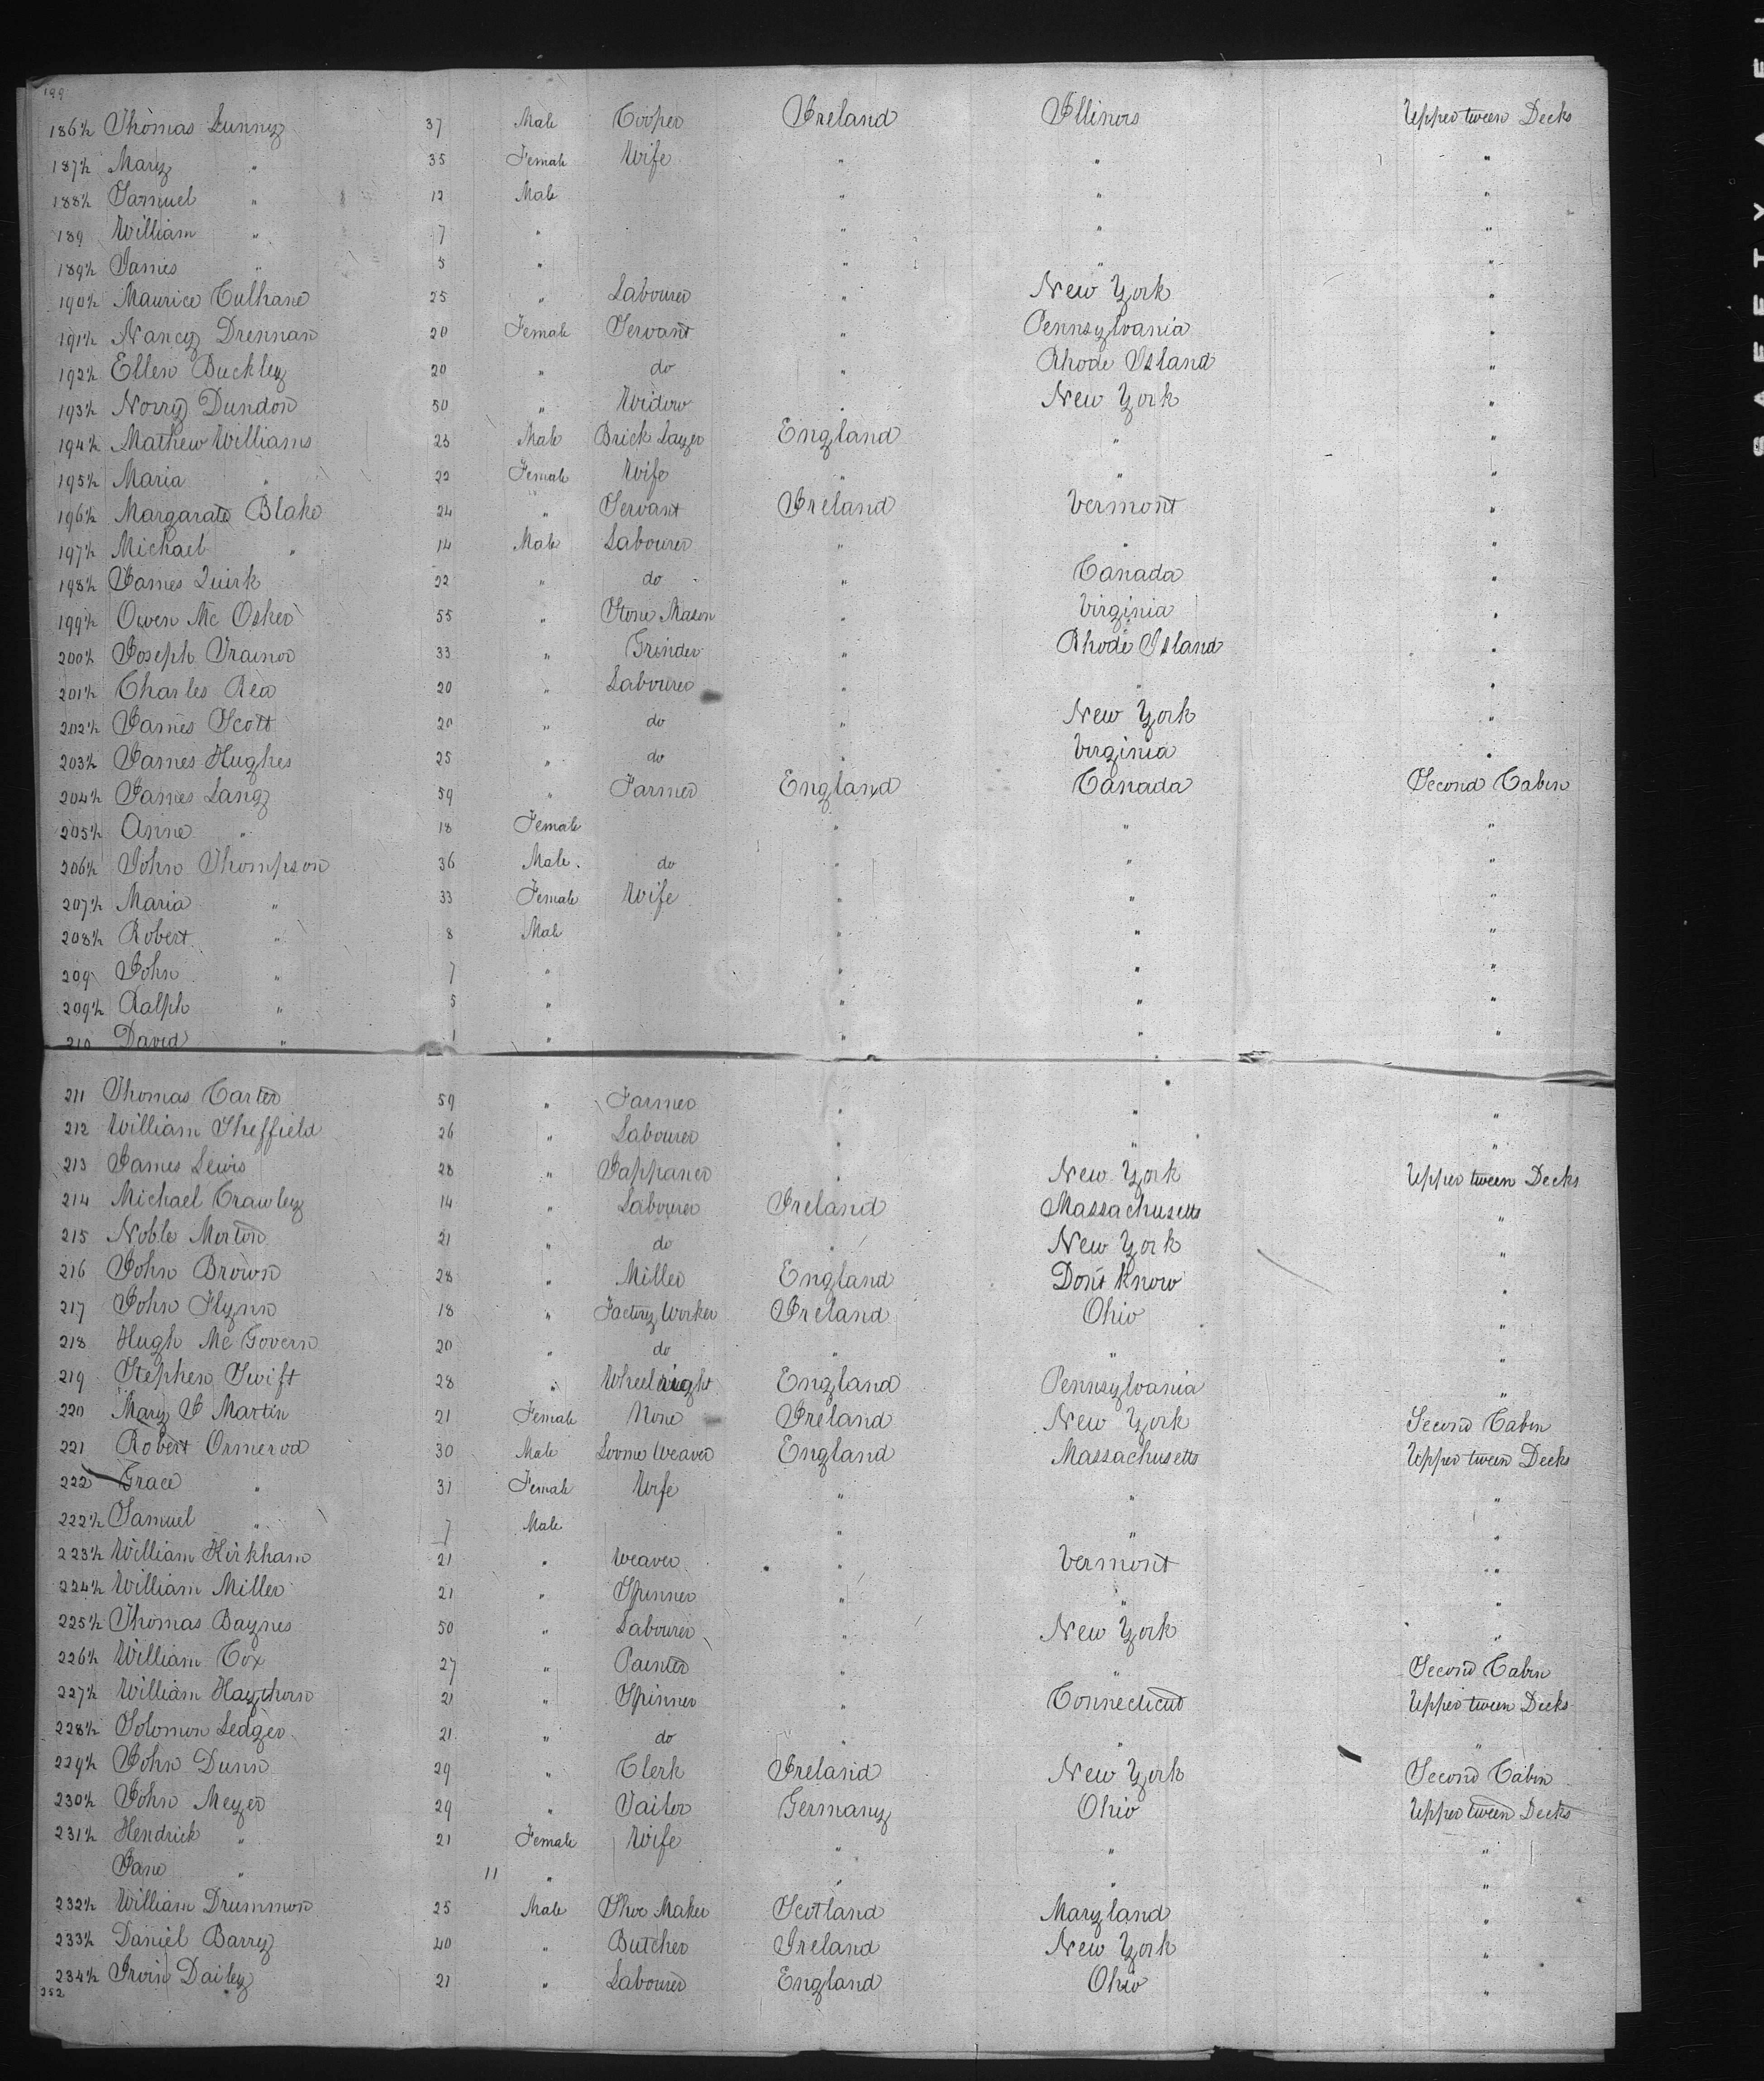 199
186½ Thomas Lunny 37 Male Cooper Ireland Illinois Upper tween Decks
187½ Mary " 35 Female Wife " " "
188½ Samuel " 12 Male " " "
189 William " 7 " " " "
189½ James " 5 " " " "
190½ Maurice Culhane 25 " Labourer " New York "
191½ Nancy Drennan 20 Female Servant " Pennsylvania "
192½ Ellen Buckley 20 " do " Rhode Island "
193½ Norry Dundon 50 " Widow " New York "
194½ Mathew Williams 23 Male Brick Layer England " "
195½ Maria " 22 Female Wife " " "
196½ Margarate Blake 24 " Servant Ireland Vermont "
197½ Michael " 14 Male Labourer " " "
198½ James Quirk 22 " do " Canada "
199½ Owen Mc Osker 55 " Stone Mason " Virginia "
200½ Joseph Trainor 33 " Grinder " Rhode Island "
201½ Charles Rea 20 " Labourer " " "
202½ James Scott 20 " do " New York "
203½ James Hughes 25 " do " Virginia "
204½ James Lang 59 " Farmer England Canada Second Cabin
205½ Anne " 18 Female " " "
206½ John Thompson 36 Male do " " "
207½ Maria " 33 Female Wife " " "
208½ Robert " 8 Male " " "
209 John " 7 " " " "
209½ Ralph " 5 " " " "
210 David " 1 " " " "
211 Thomas Carter 59 " Farmer " " "
212 William Sheffield 26 " Labourer " " "
213 James Lewis 28 " Jappaner " New York Upper tween Decks
214 Michael Crawley 14 " Labourer Ireland Massachusetts "
215 Noble Morton 21 " do " New York "
216 John Brown 28 " Miller England Don't Know "
217 John Flynn 18 " Factory Worker Ireland Ohio "
218 Hugh Mc Govern 20 " do " " "
219 Stephen Swift 28 " Wheelright England Pennsylvania "
220 Mary J Martin 21 Female None Ireland New York Second Cabin
221 Robert Ormerod 30 Male Loome Weaver England Massachusetts Upper tween Decks
222 Grace " 31 Female Wife " " "
222½ Samuel " 7 Male " " "
223½ William Kirkham 21 " Weaver " Vermont "
224½ William Miller 21 " Spinner " " "
225½ Thomas Baynes 50 " Labourer " New York "
226½ William Cox 27 " Painter " " Second Cabin
227½ William Haythorn 21 " Spinner " Connecticut Upper tween Decks
228½ Solomon Ledger 21 " do " " "
229½ John Dunn 29 " Clerk Ireland New York Second Cabin
230½ John Meyer 29 " Tailor Germany Ohio Upper tween Decks
231½ Hendrick " 21 Female Wife " " "
Jane " 11 " " " "
232½ William Drummon 25 Male Shoe Maker Scotland Maryland "
233½ Daniel Barry 40 " Butcher Ireland New York "
234½ Irvin Dailey 21 " Labourer England Ohio "
252